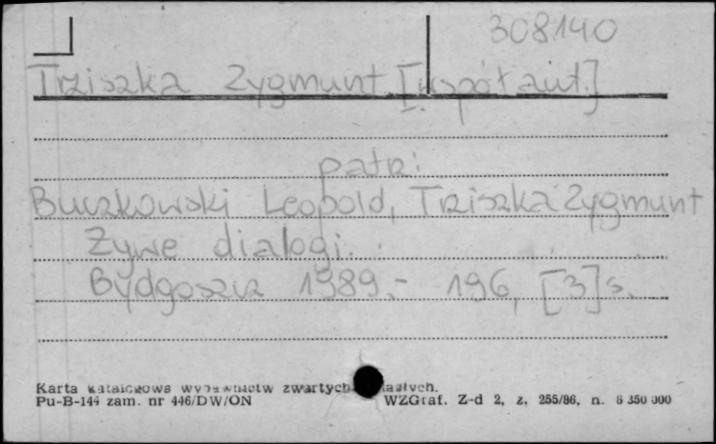 308140
Trziszka Zygmunt [współaut.]
patrz:
Buczkowski Leopold, Trziszka Zygmunt
Żywe dialogi.
Bydgoszcz 1989.- 196, [3] s.
Karta katalogowa wydawnictw zwartych
Pu-B-144 zam. nr 446/DW/ON WZGraf. Z-d 2, z. 255/86, n. 8 350 000